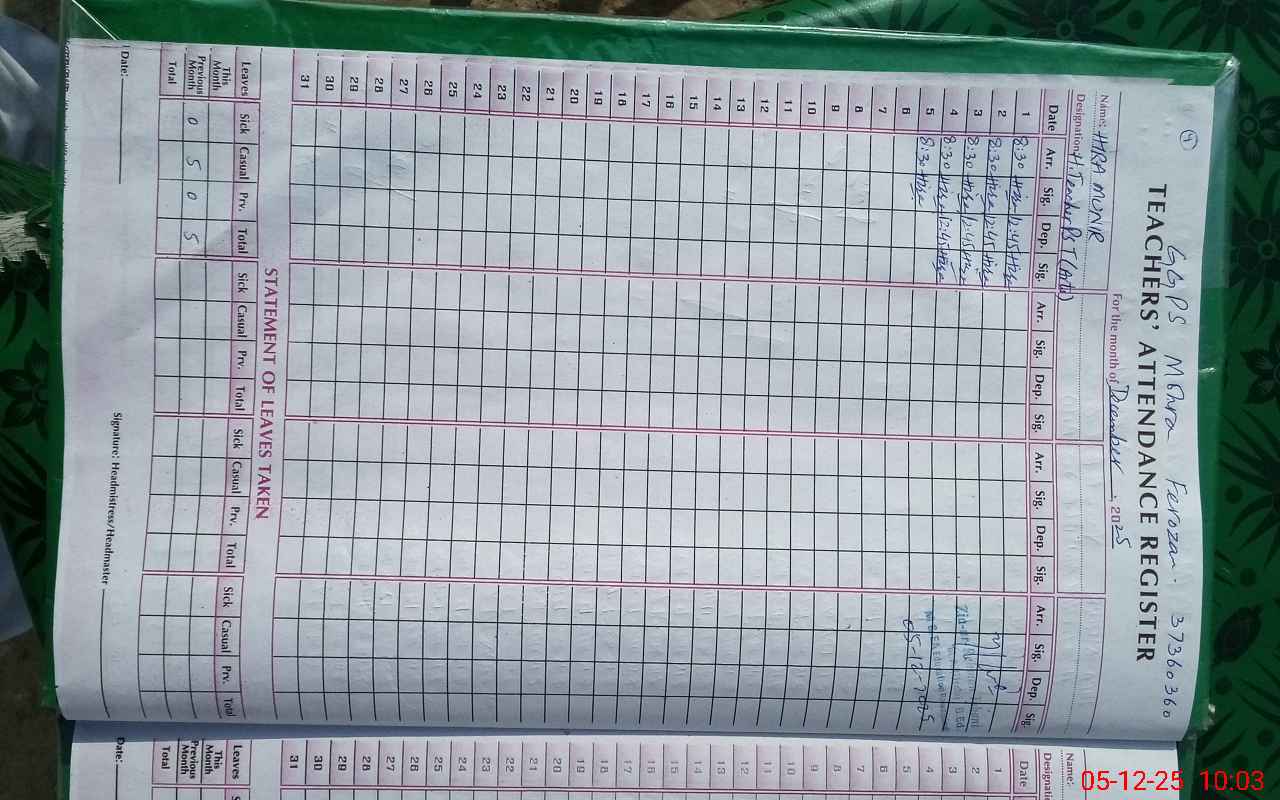 4
GGPS Mohra Ferozan. 37360360
TEACHERS' ATTENDANCE REGISTER
For the month of December, 2025
Name: HIRA MUNIR
Designation: H.Teacher PST (Arts)
Date Arr. Sig. Dep. Sig. Arr. Sig. Dep. Sig. Arr. Sig. Dep. Sig. Arr. Sig. Dep. Sig.
1 8:30 Hira 12:45 Hira
2 8:30 Hira 12:45 Hira
3 8:30 Hira 12:45 Hira
4 8:30 Hira 12:45 Hira
5 8:30 Hira
6 05-12-2025
7
8
9
10
11
12
13
14
15
16
17
18
19
20
21
22
23
24
25
26
27
28
29
30
31
STATEMENT OF LEAVES TAKEN
Leaves Sick Casual Prv. Total Sick Casual Prv. Total Sick Casual Prv. Total Sick Casual Prv. Total
This Month
Previous Month 0 5 0 5
Total
Date:
Signature: Headmistress/Headmaster
Name:
Designat
Date
1
2
3
4
5
6
7
8
9
10
11
12
13
14
15
16
17
18
19
20
21
22
23
24
25
26
27
28
29
30
31
Leaves S
This Month
Previous Month
Total
Date:
05-12-25 10:03